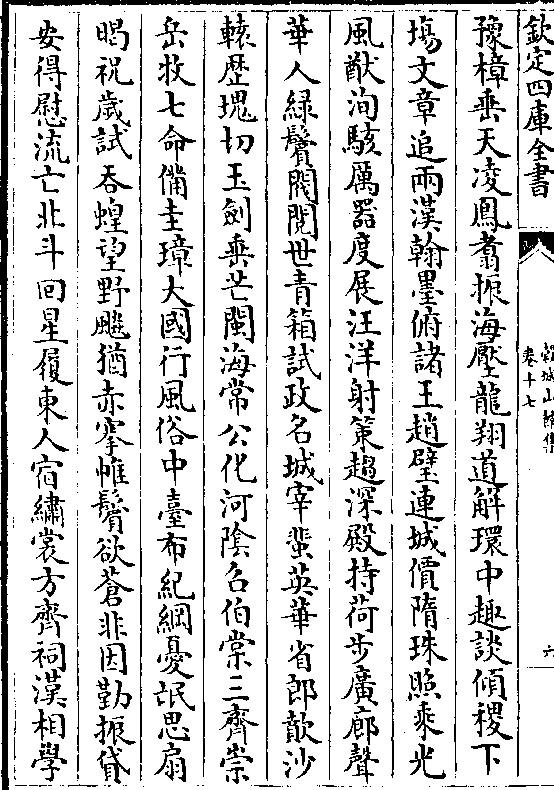 欽定四庫全書
穀城山館詩集
卷十七
六
豫樟垂天凌鳳翥振海壓龍翔道解環中趣談傾稷下
塲文章追兩漢翰墨俯諸王趙璧連城價隋珠照乘光
風猷洵駭厲器度展汪洋射策趨深殿持荷步廣廊聲
華人綠鬢閥閱世青箱試政名城宰蜚英華省郎歕沙
轅歴塊切玉劍垂芒閩海常公化河陰召伯棠三齊崇
岳牧七命備圭璋大國行風俗中臺布紀綱憂氓思扇
暍祝歲試吞蝗望野飈猶赤搴帷鬢欲蒼非因勤振貸
安得慰流亡北斗回星履東人宿繡裳方齊祠漢相學